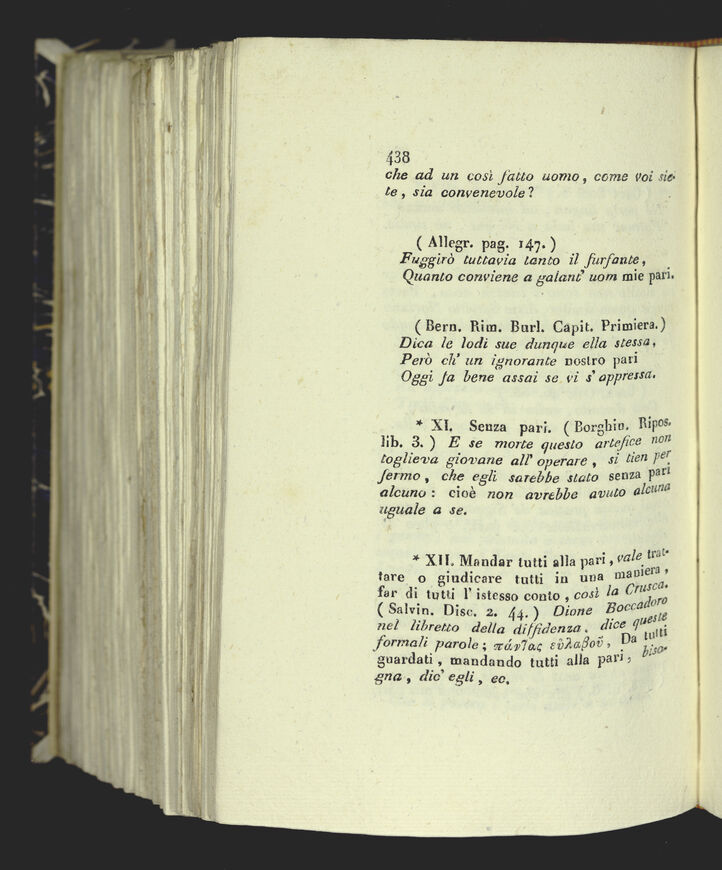 438
che ad un così fatto uomo, come voi sie-
te, sia convenevole?
( Allegr. pag. 147. )
Fuggirò tuttavia tanto il furfante,
Quanto conviene a galant' uom mie pari.
( Bern. Rim. Burl. Capit. Primiera.)
Dica le lodi sue dunque ella stessa,
Però ch' un ignorante nostro pari
Oggi fa bene assai se vi s' appressa.
* XI. Senza pari. ( Borghin. Ripos.
lib. 3. ) E se morte questo artefice non
toglieva giovane all' operare, si tien per
fermo, che egli sarebbe stato senza pari
alcuno: cioè non avrebbe avuto alcuna
uguale a se.
* XII. Mandar tutti alla pari, vale trat-
tare o giudicare tutti in una maniera,
far di tutti l' istesso conto, così la Crusca.
( Salvin. Disc. 2. 44. ) Dione Boccadoro
nel libretto della diffidenza, dice queste
formali parole; πάντας εὐλαβοῦ, Da tutti
guardati, mandando tutti alla pari, biso-
gna, dic' egli, ec.